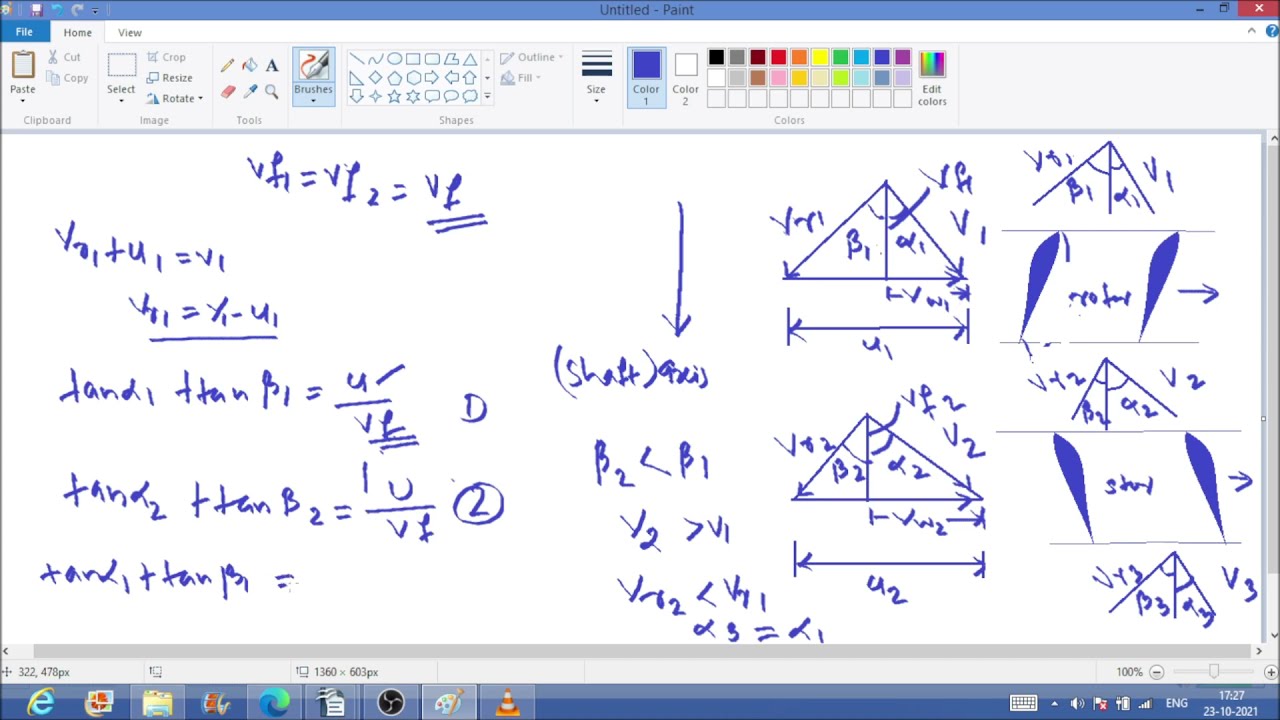 Untitled - Paint
File Home View
Paste
Cut
Copy
Clipboard
Select
Crop
Resize
Rotate
Image
Tools
Brushes
Outline
Fill
Shapes
Size
Color 1
Color 2
Edit colors
Colors
Vf1 = Vf2 = Vf
Vr1 + u1 = V1
Vr1 = V1 - u1
tanα1 + tan β1 = u / Vf 1)
tanα2 + tan β2 = U / Vf 2
tanα1 + tan β1 =
(shaft) axis
β2 < β1
V2 > V1
Vr2 < Vr1
α3 = α1
Vr1 β1 α1 Vf1 V1
Vw1
u1
Vr2 β2 α2 Vf2 V2
Vw2
u2
Vr1 β1 α1 V1
rotor
Vr2 β2 α2 V2
Vr3 β3 α3 V3
322, 478px
1360 × 603px
100%
ENG
17:27
23-10-2021